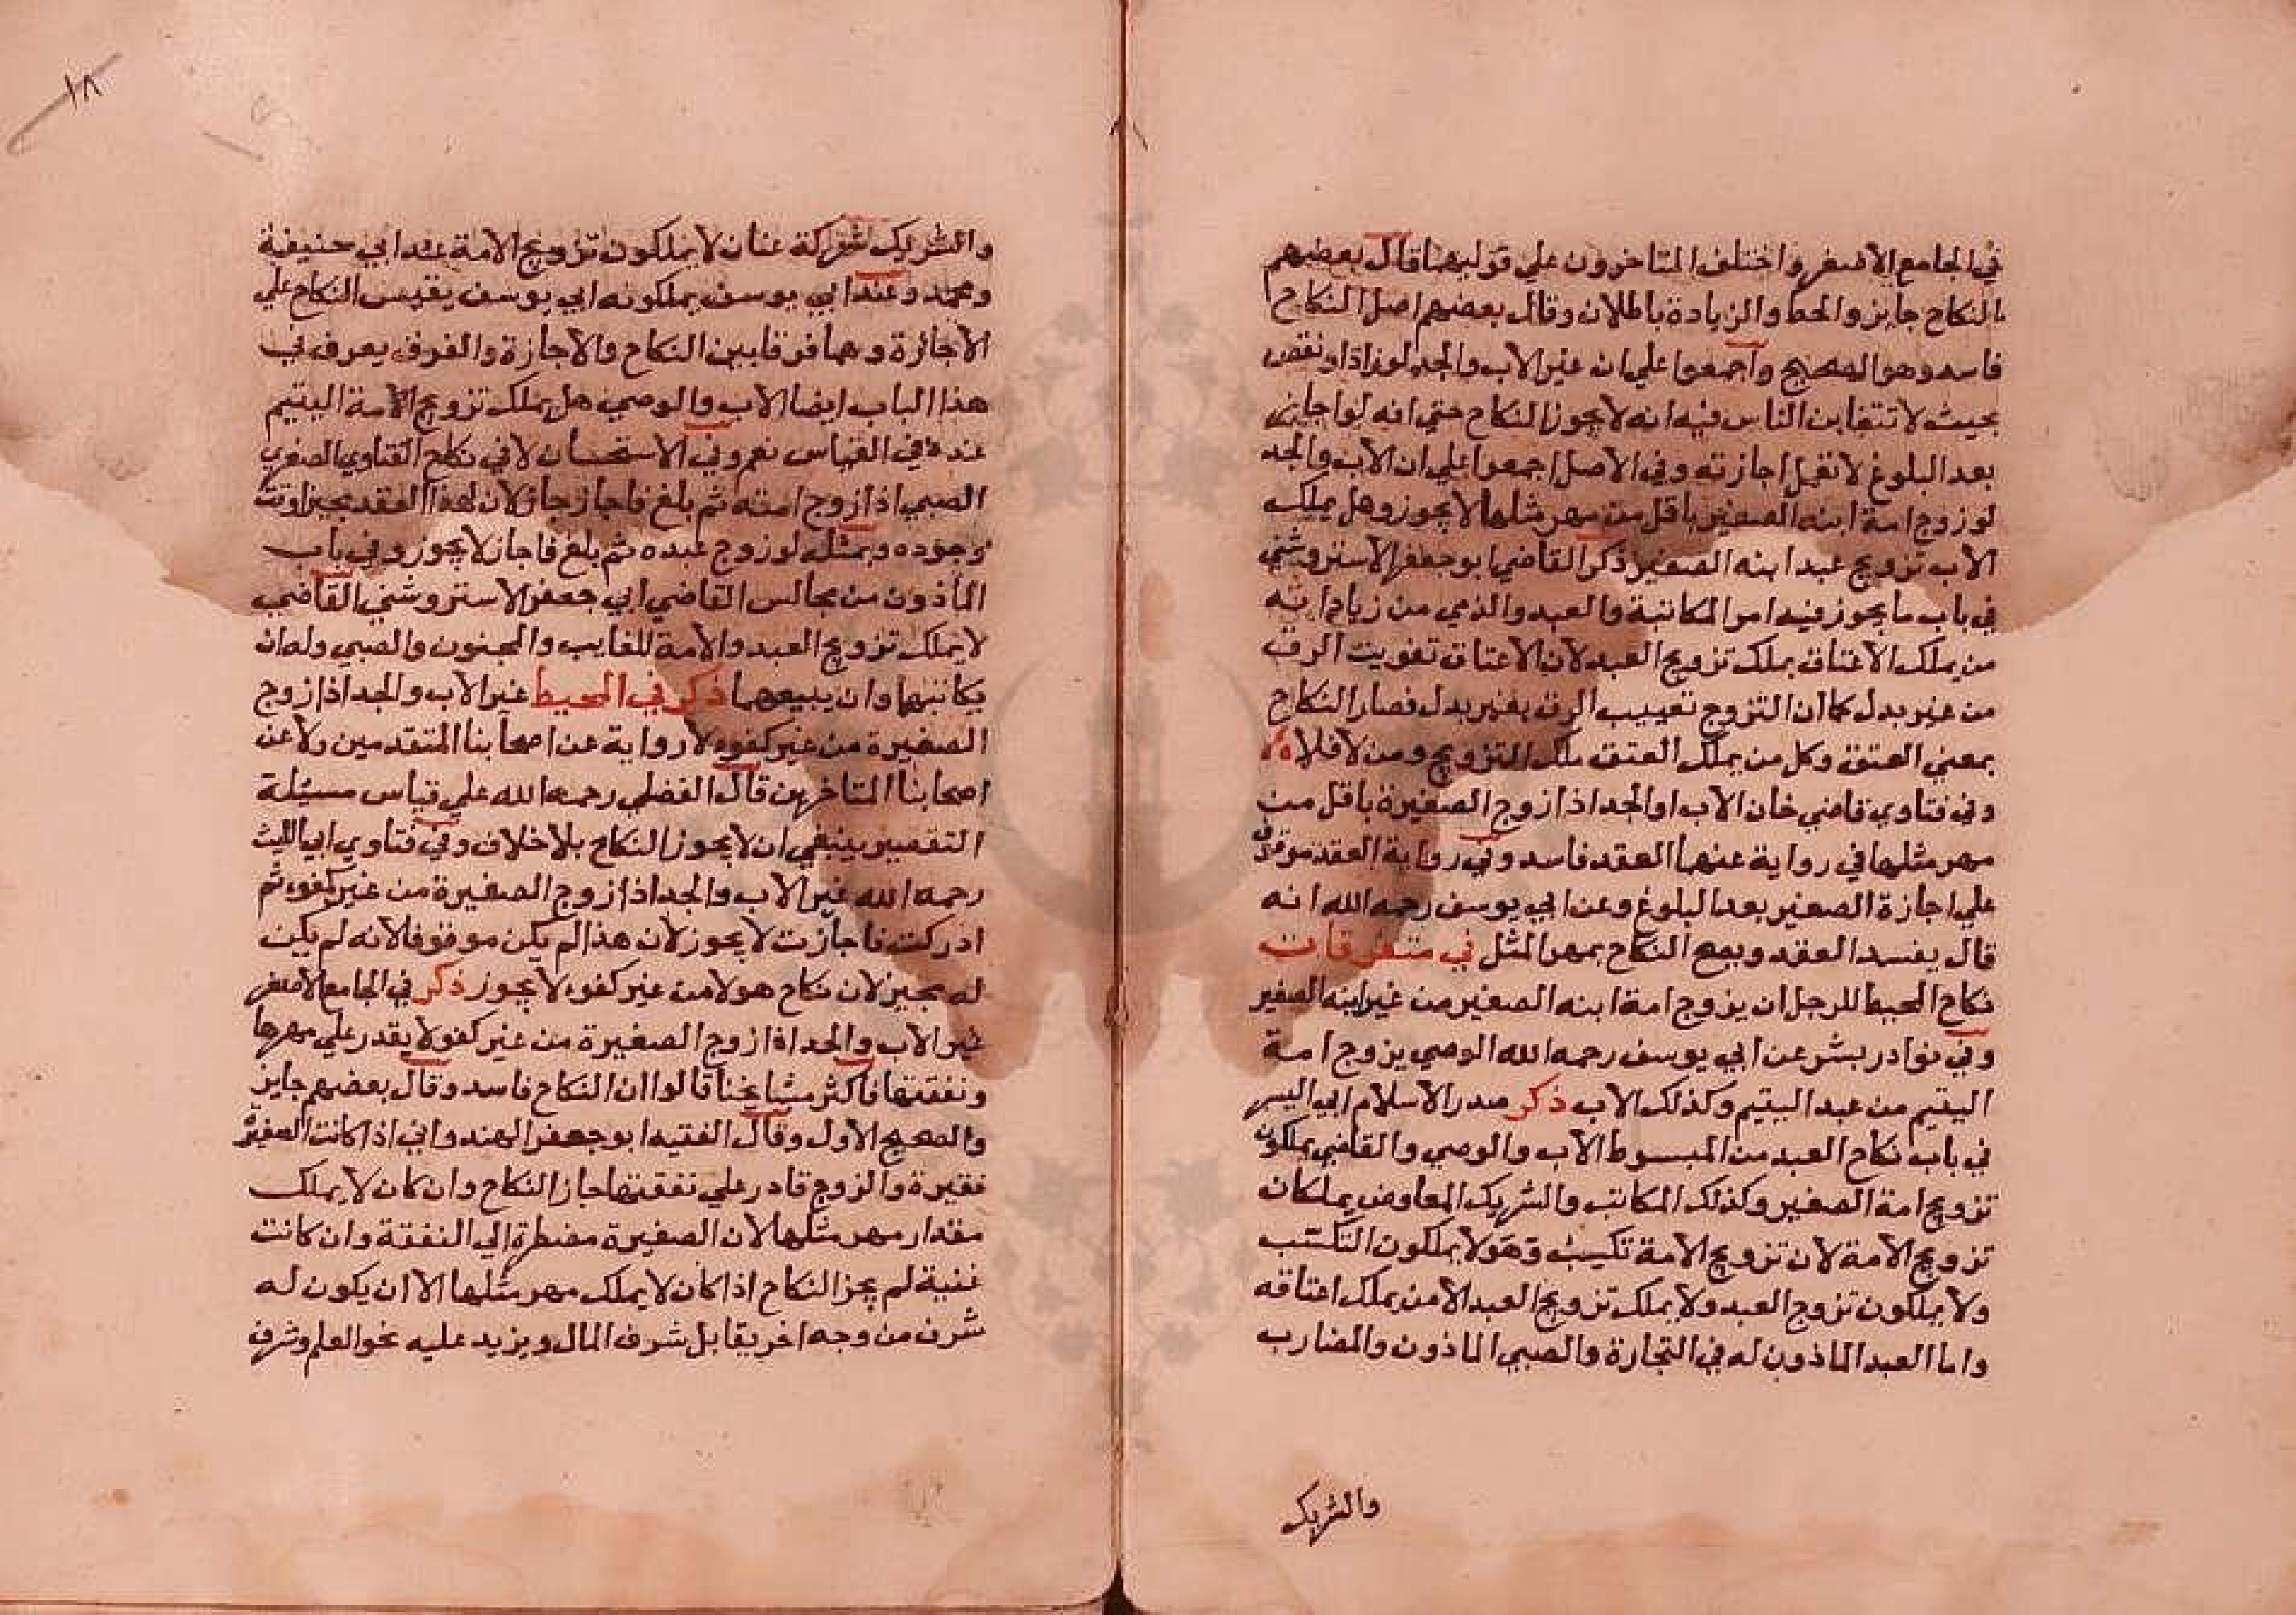 في الجامع الاصغر واختلف المتاخرون علي قولهما قال بعضهم
النكاح جايز والحط والزيادة باطلان وقال بعضهم اصل النكاح
فاسد وهو الصحيح واجمعوا علي ان غير الاب والجد لو زاد او نقص
بحيث لا تتغابن الناس فيه انه لا يجوز النكاح حتي انه لو اجاز
بعد البلوغ لا تقبل اجازته وفي الاصل اجمعوا علي ان الاب والجد
لو زوج امة ابنه الصغير باقل من مهر مثلها لا يجوز وهل يملك
الاب تزويج عبد ابنه الصغير ذكر القاضي ابو جعفر الاستروشني
في باب ما يجوز فيه امر المكاتبة والعبد والذمي من زياداته
من يملك الاعتاق يملك تزويج العبد لان الاعتاق تفويت الرق
من غير بدل كما ان التزوج تعييب الرق بغير بدل فصار النكاح
بمعني العتق وكل من يملك العتق ملك التزويج ومن لا فلا
وفي فتاوي قاضي خان الاب او الجد اذا زوج الصغيرة باقل من
مهر مثلها في رواية عنها العقد فاسد وفي رواية العقد موقوف
علي اجازة الصغير بعد البلوغ وعن ابي يوسف رحمه الله انه
قال يفسد العقد ويصح النكاح بمهر المثل في متفرقات
نكاح المحيط للرجل ان يزوج امة ابنه الصغير من غير ابنه الصغير
وفي نوادر بشر عن ابي يوسف رحمه الله الوصي يزوج امة
اليتيم من عبد اليتيم وكذلك الاب ذكر صدر الاسلام ابي اليسر
في باب نكاح العبد من المبسوط الاب والوصي والقاضي يملكون
تزويج امة الصغير وكذلك المكاتب والشريك المعاوض يملكان
تزويج الامة لان تزويج الامة تكسب وهولا يملكون التكسب
ولا يملكون تزوج العبد ولا يملك تزويج العبد الا من يملك اعتاقه
واما العبد الماذون له في التجارة والصبي الماذون والمضارب
والشريك
١٨
والشريك شركة عنان لا يملكون تزويج الامة عند ابي حنيفة
ومحمد وعند ابي يوسف يملكونه ابي يوسف يقيس النكاح علي
الاجازة وهما فرقا بين النكاح والاجازة والفرق يعرف في
هذا الباب ايضا الاب والوصي هل يملك تزويج الامة اليتيم
عنده في القياس نعم وفي الاستحسان لا في نكاح الفتاوي الصغري
الصبي اذا زوج امته ثم بلغ فاجاز جاز لان لهذا العقد مجيزا وقت
وجوده وبمثله لو زوج عبده ثم بلغ فاجاز لا يجوز وفي باب
الماذون من مجالس القاضي ابي جعفر الاستروشني القاضي
لا يملك تزويج العبد والامة للغايب والمجنون والصبي وله ان
يكاتبها وان يبيعهما ذكر في المحيط غير الاب والجد اذا زوج
الصغيرة من غير كفوء لا رواية عن اصحابنا المتقدمين ولا عن
اصحابنا المتاخرين قال الفضلي رحمه الله علي قياس مسئلة
التقصير ينبغي ان لا يجوز النكاح بلا خلاف وفي فتاوي ابي الليث
رحمه الله غير الاب والجد اذا زوج الصغيرة من غير كفوء ثم
ادركت فاجازت لا يجوز لان هذا لم يكن موقوفا لانه لم يكن
له مجيز لان نكاح هولا من غير كفوء لا يجوز ذكر في الجامع الاصغر
غير الاب والجد اذا زوج الصغيرة من غير كفو لا يقدر علي مهرها
ونفقتها فاكثر مشايخنا قالوا ان النكاح فاسد وقال بعضهم جايز
والصحيح الاول وقال الفقيه ابو جعفر الهندواني اذا كانت الصغيرة
فقيرة والزوج قادر علي نفقتها جاز النكاح وان كان لا يملك
مقدار مهر مثلها لان الصغيرة مضطرة الي النفقة وان كانت
غنية لم يجز النكاح اذا كان لا يملك مهر مثلها الا ان يكون له
شرف من وجه اخر يقابل شرف المال ويزيد عليه نحو العلم وشرف